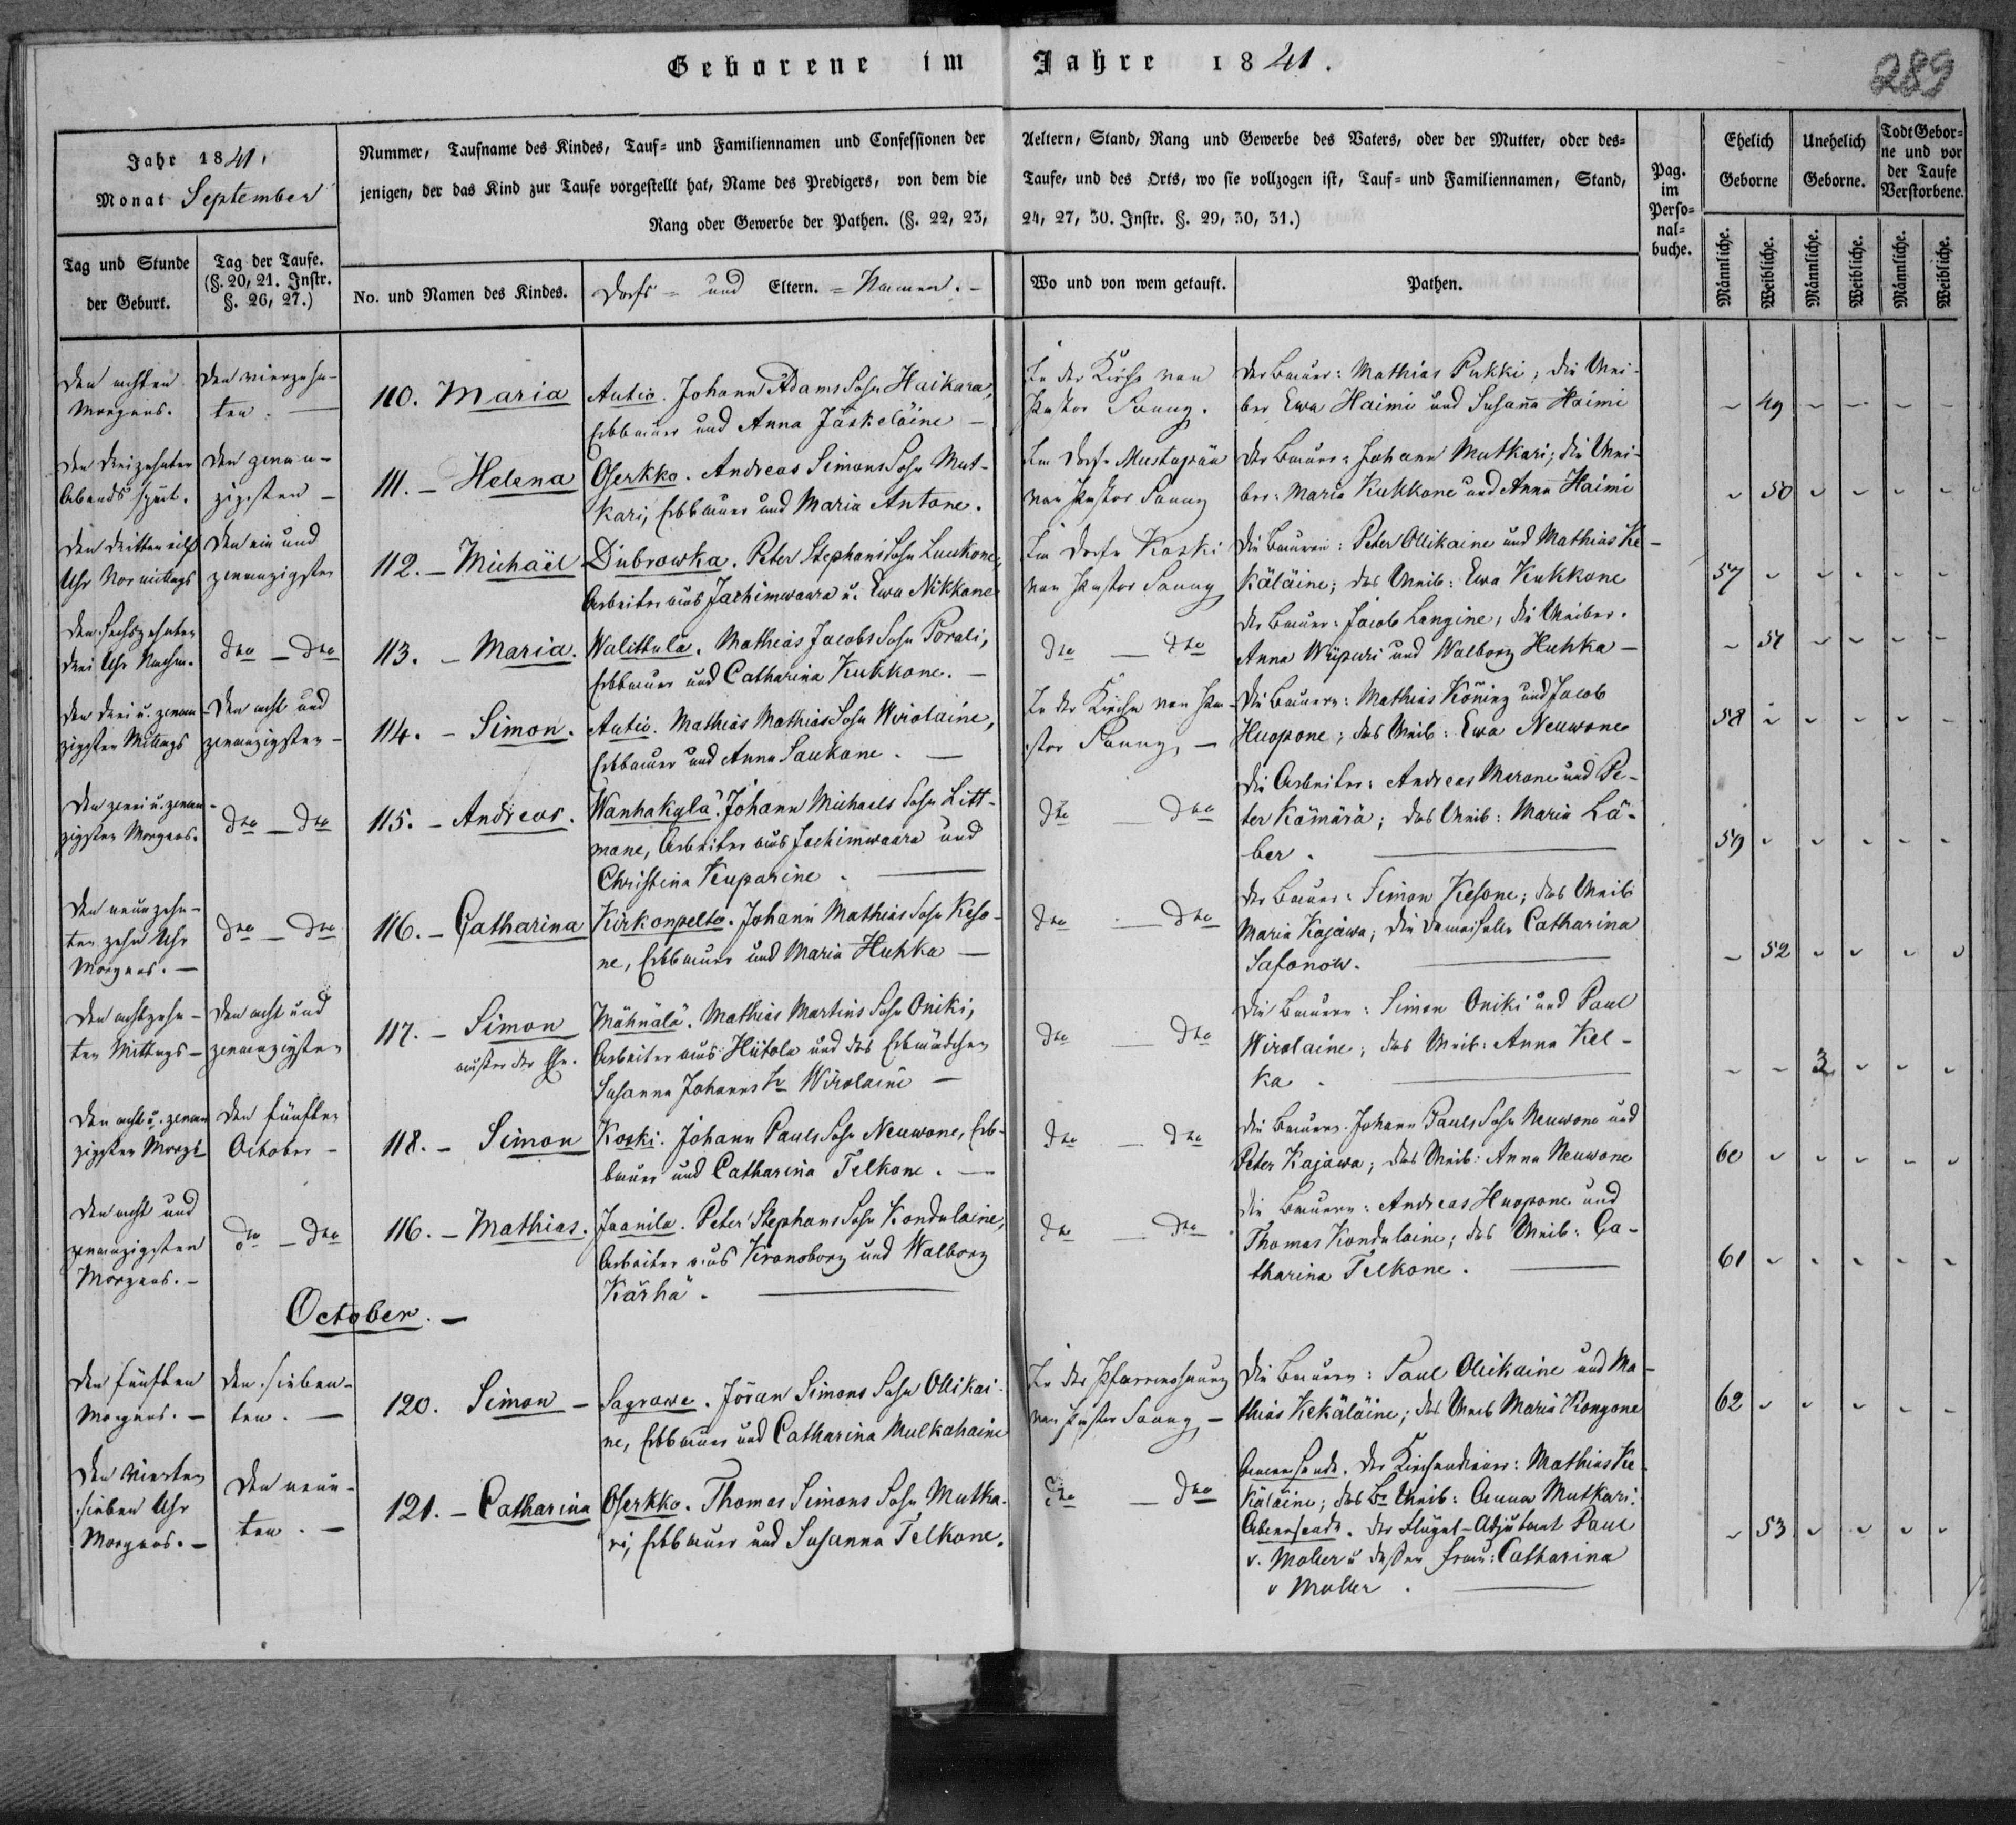 Geborene im Jahre 1841.
289
Jahr 1841,
Monat September
Nummer, Taufname des Kindes, Tauf= und Familiennamen und Confessionen der Aeltern, Stand, Rang und Gewerbe des Vaters, oder der Mutter, oder des=
jenigen, der das Kind zur Taufe vorgestellt hat, Name des Predigers, von dem die Taufe, und des Orts, wo sie vollzogen ist, Tauf= und Familiennamen, Stand,
Rang oder Gewerbe der Pathen. (§. 22, 23, 24, 27, 30. Instr. §. 29, 30, 31.)
Pag.
im
Perso=
nal=
buche.
Ehelich
Geborne
Unehelich
Geborne.
Todt Gebor=
ne und vor
der Taufe
Verstorbene.
Tag und Stunde
der Geburt.
Tag der Taufe.
(§. 20, 21. Instr.
§. 26, 27.)
No. und Namen des Kindes.
Dorfs = und Eltern. = Namen. -
Wo und von wem getauft.
Pathen.
Männliche.
Weibliche.
Männliche.
Weibliche.
Männliche.
Weibliche.
Den achten
Morgens.
Den vierzehn-
ten. -
110. Maria
Autio. Johann Adams Sohn Haikara,
Erbbauer und Anna Jäskeläine -
In der Kirche von
Pastor Sanny.
Der Bauer: Mathias Pukki; die Wei-
ber Ewa Haimi und Susanna Haimi
49
Den dreizehnten
Abends spät.
Den zwan-
zigsten -
111. - Helena
Oserkko. Andreas Simons Sohn Mut-
kari, Erbbauer und Maria Antone.
Im Dorfe Mustapää
von Pastor Sanny
Der Bauer: Johann Mutkari; die Wei-
ber: Maria Kukkone und Anna Haimi
50
Den dritten eilf
Uhr Vormittags
Den ein und
zwanzigsten
112. - Michaël
Dubrowka. Peter Stephans Sohn Luukone,
Arbeiter aus Jachimwaara u. Ewa Nikkane
Im Dorfe Koski
von Pastor Sanny
Die Bauern: Peter Ollikaine und Mathias Ke-
käläine; das Weib: Ewa Kukkone
57
Den sechszehnten
drei Uhr Nachm.
dto - dto
113. - Maria.
Walittula. Mathias Jacobs Sohn Porali,
Erbbauer und Catharina Kukkone. -
dto - dto
Der Bauer: Jacob Langine; die Weiber.
Anna Wiipuri und Walborg Huhka -
51
Den drei u. zwan-
zigsten Mittags
Den acht und
zwanzigsten -
114. - Simon.
Autio. Mathias Mathias Sohn Wirolaine,
Erbbauer und Anna Saukone. -
In der Kirche von Pa-
stor Sanny, -
Die Bauern: Mathias Köning und Jacob
Huopone; das Weib: Ewa Neuwone
58
Den zwei u. zwan-
zigsten Morgens.
dto - dto
115. - Andreas.
Wanhakylä. Johann Michaels Sohn Litt-
mane, Arbeiter aus Jachimwaara und
Christina Kuparine. -
dto - dto
Die Arbeiter: Andreas Merone und Pe-
ter Kämärä; das Weib: Maria Lä-
ber. -
59
Den neunzehn-
ten zehn Uhr
Morgens. -
dto - dto
116. - Catharina
Kirkonpelto. Johann Mathias Sohn Keso-
ne, Erbbauer und Maria Huhka -
dto - dto
Der Bauer: Simon Kesone; das Weib
Maria Kajawa; die Demoiselle Catharina
Safonow. -
52
Den achtzehn-
ten Mittags -
Den acht und
zwanzigsten
117. - Simon
außer der Ehe.
Mähnälä. Mathias Martins Sohn Oniki,
Arbeiter aus Hiitola und das Erbmädchen
Susanna Johanns Tr Wirolaine -
dto - dto
Die Bauern: Simon Oniki und Paul
Wirolaine; das Weib: Anna Kel-
ka. -
3
Den acht u. zwan
zigsten Morgs
Den fünften
October -
118. - Simon
Koski. Johann Pauls Sohn Neuwone, Erb-
bauer und Catharina Telkone. -
dto - dto
Die Bauern. Johann Pauls Sohn Neuwone und
Peter Kajawa; das Weib: Anna Neuwone
60
Den acht und
zwanzigsten
Morgens. -
dto - dto
116. - Mathias.
Jaanila. Peter Stephans Sohn Kondulaine,
Arbeiter aus Kronoborg und Walborg
Kärhä. -
dto - dto
Die Bauern: Andreas Huopone und
Thomas Kondulaine; das Weib: Ca-
tharina Telkone. -
61
October. -
Den fünften
Morgens. -
Den sieben-
ten. -
120. Simon -
Sagrowe. Jöran Simons Sohn Ollikai-
ne, Erbbauer und Catharina Mulkahaine
In der Pfarrwohnung
von Pastor Sanny -
Die Bauern: Paul Ollikaine und Ma-
thias Kekäläine; das Weib Maria Kongone
62
Den vierten
sieben Uhr
Morgens. -
Den neun-
ten. -
121. - Catharina
Oserkko. Thomas Simons Sohn Mutka-
ri, Erbbauer und Susanna Telkone.
dto - dto
Anwesende. Der Kirchendiener: Mathias Ke-
käläine; das Br Weib: Anna Mutkari.
Abwesende. Der Flügel-Adjutant Paul
v. Moller u deßen Frau: Catharina
v Moller. -
53